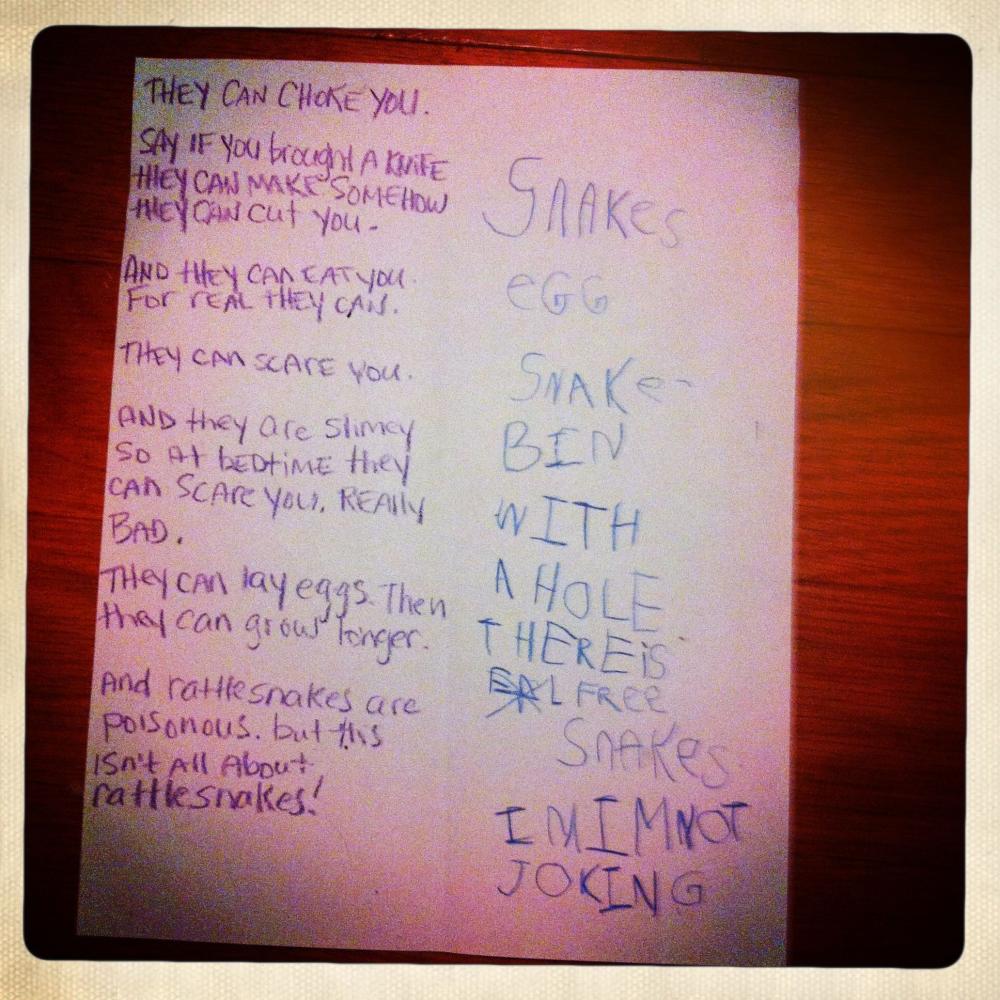 THEY CAN CHOKE YOU.
SAY IF YOU brought A KNIFE
tHEY CAN MAKE SOMEHOW
tHEY CAN CUt YOU.
AND tHEY CAN EAT YOU.
FOR REAL tHEY CAN.
tHEY CAN SCARE YOU.
AND they are Slimey
SO At bEDtIME they
CAN SCARE YOU. REAlly
BAD.
THey CAN lay eggs. Then
they can grow longer.
And rattlesnakes are
poisonous. but this
isn't All About
rattlesnakes!
SNAKes
eGG
SNAKe-
BIN
WITH
A HOLE
THERE iS
L FREE
SNAKES
IM IM NOT
JOKING